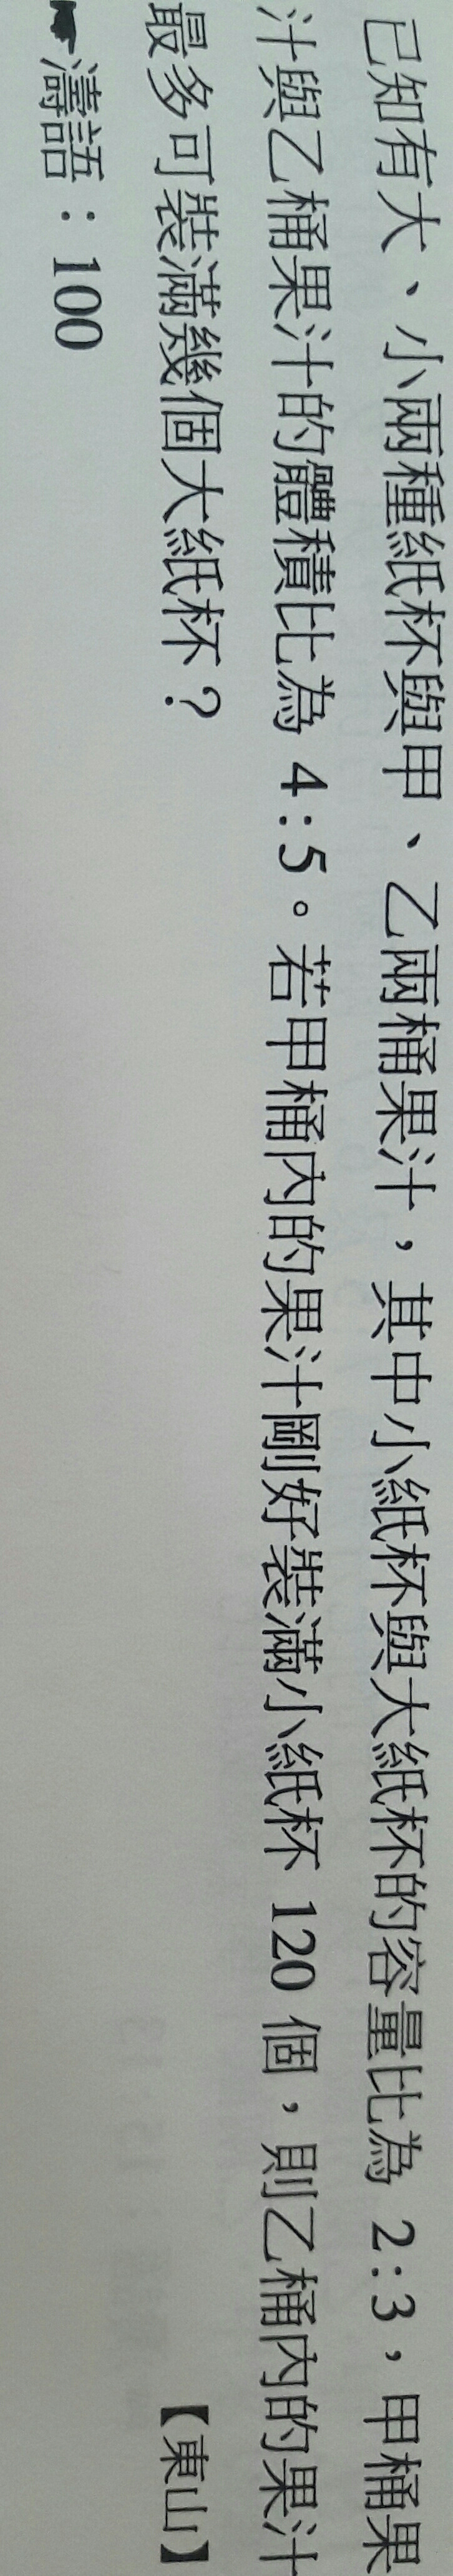 已知有大、小兩種紙杯與甲、乙兩桶果汁，其中小紙杯與大紙杯的容量比為 2:3，甲桶果
汁與乙桶果汁的體積比為 4:5。若甲桶內的果汁剛好裝滿小紙杯 120 個，則乙桶內的果汁
最多可裝滿幾個大紙杯？
【東山】
☛濤語：100